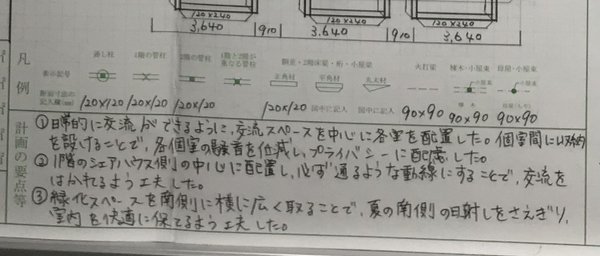 120×240 120×240 120×240
3,640 910 3.640 910 3,640
凡例
通し柱 1階の管柱 2階の管柱 1階と2階が重なる管柱 胴差・2階床梁・桁・小屋梁 火打梁 棟木・小屋束 母屋・小屋束
表示記号 正角材 平角材 丸太材 小屋束 小屋束
断面寸法の記入欄(mm) 120×120 120×120 120×120 120×120 図中に記入 図中に記入 90×90 90×90 90×90
計画の要点等
①日常的に交流ができるように、交流スペースを中心に各室を配置した。個室間に収納
を設けることで、各個室の騒音を低減し、プライバシーに配慮した。
②1階のシェアハウス側の中心に配置し、必ず通るような動線にすることで、交流を
はかれるよう工夫した。
③緑化スペースを南側に横に広く取ることで、夏の南側の日射しをさえぎり、
室内を快適に保てるよう工夫した。